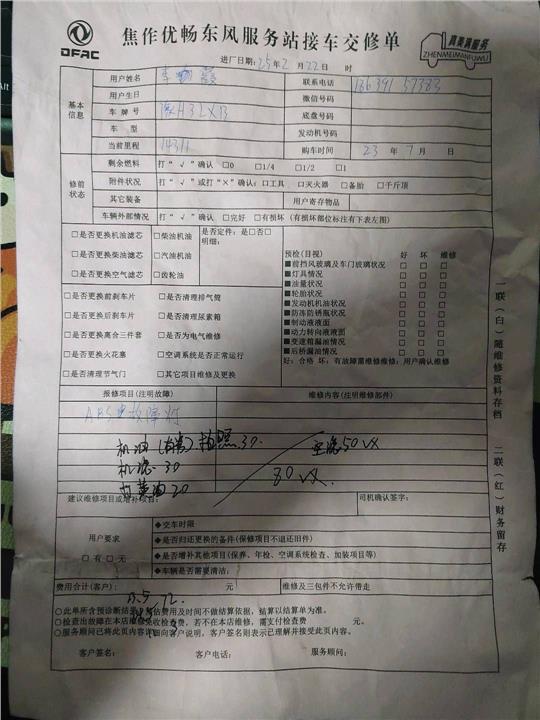 DFAC
焦作优畅东风服务站接车交修单
真美满服务
ZHENMEIMANFUWU
进厂日期: 25年2月22日 时
基本信息
用户姓名 李 霞
联系电话
用户生日
微信号码
车牌号
底盘号
车型
发动机号码
当前里程 14311
购车时间 23年7月 日
修前状态
剩余燃料 打“√”确认 □0 □1/4 □1/2 □1
附件状况 打“√”或打“×”确认: □工具 □灭火器 □备胎 □千斤顶
其它装备
用户寄存物品
车辆外部情况 打“√”确认 □完好 □有损坏 (有损坏部位标注有下表左图)
□是否更换机油滤芯 □柴油机油
□是否更换柴油滤芯 □汽油机油
□是否更换空气滤芯 □齿轮油
是否定件: 是□否□
明细:
□是否更换前刹车片 □是否清理排气筒
□是否更换后刹车片 □是否清理尿素箱
□是否更换离合三件套 □是否为电气维修
□是否更换火花塞 □空调系统是否正常运行
□是否清理节气门 □其它项目维修及更换
预检(目视) 好 坏 维修
■前挡风玻璃及车门玻璃状况 □ □ □
■灯具情况 □ □ □
■油量状况 □ □ □
■轮胎状况 □ □ □
■发动机机油状况 □ □ □
■防冻防锈瓶状况 □ □ □
■制动液液面 □ □ □
■动力转向液液面 □ □ □
■变速箱漏油情况 □ □ □
■后桥漏油情况 □ □ □
好: 合格 坏: 有故障需维修维修: 用户确认维修
报修项目(注明故障)
维修内容(注明维修部件)
ABS 故障灯
机油 拍照30.
空滤50
机滤30
黄油20
80
建议维修项目或增补项目:
司机确认签字:
用户要求
□有□无
◆交车时限
◆是否归还更换的备件(保修项目不退还旧件)
◆是否增补其他项目(保养、年检、空调系统检查、加装项目等)
◆车辆是否需要清洁:
费用合计(客户): 元
维修及三包件不允许带走
○此单所含预诊断结 估费用及时间不做结算依据, 结算以结算单为准。
○检查出故障在本店维 免收检查费, 若不在本店维修, 需支付检查费 元。
○服务顾问已将此页内容详 向客户说明, 客户签名则表示已理解并接受此页内容。
客户签名: 客户电话: 服务顾问:
一联(白)随维修资料存档
二联(红)财务留存